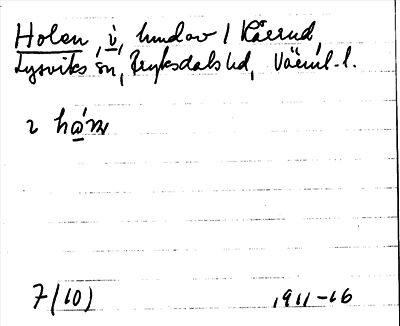 Holen, i, hmdav 1 Kårrud,
Lysviks sn, Fryksdals hd, Värml. l.
2 hà̱n
7(10) 1911-16